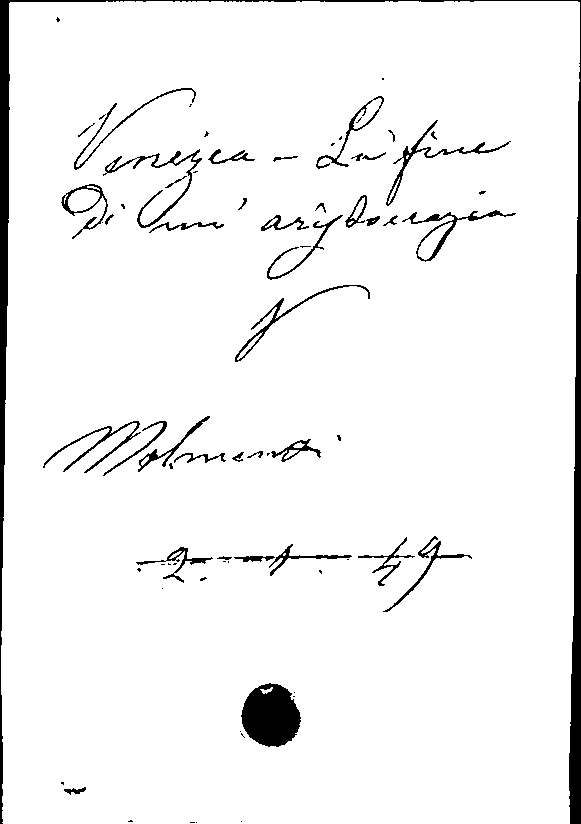 Venezia - La fine
Di un' aristocrazia
V
Molmenti
2. 1. 49